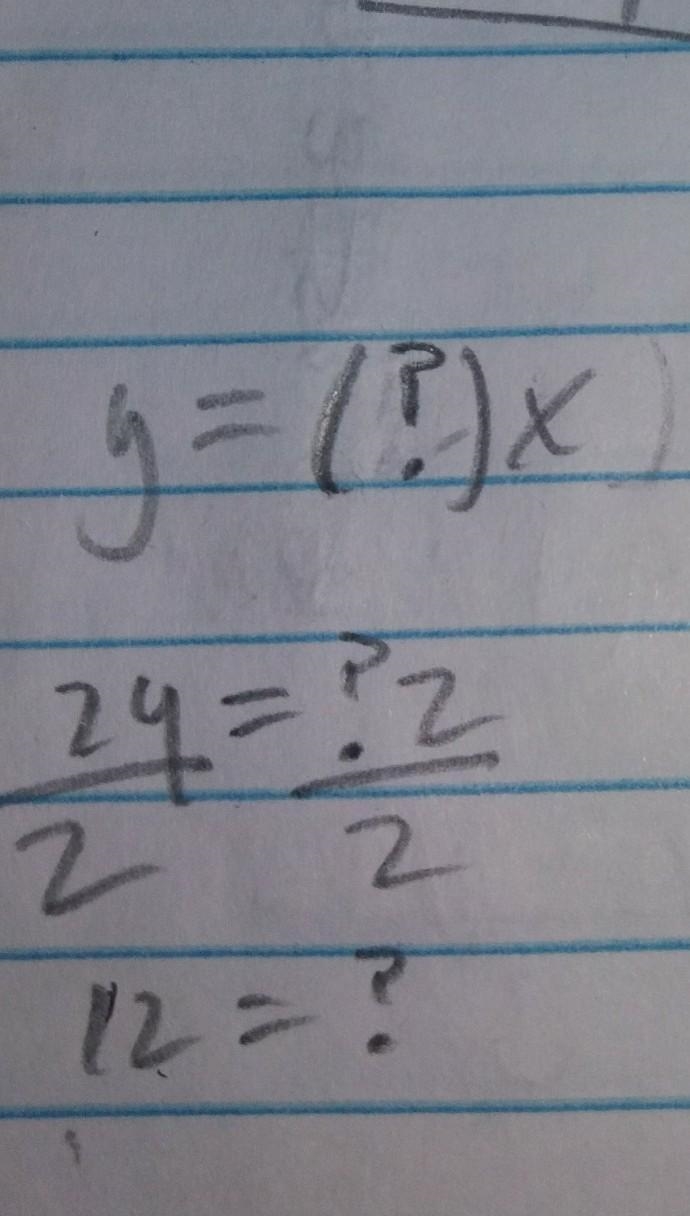 y = (?)x
24 = ? 2
2 2
12 = ?